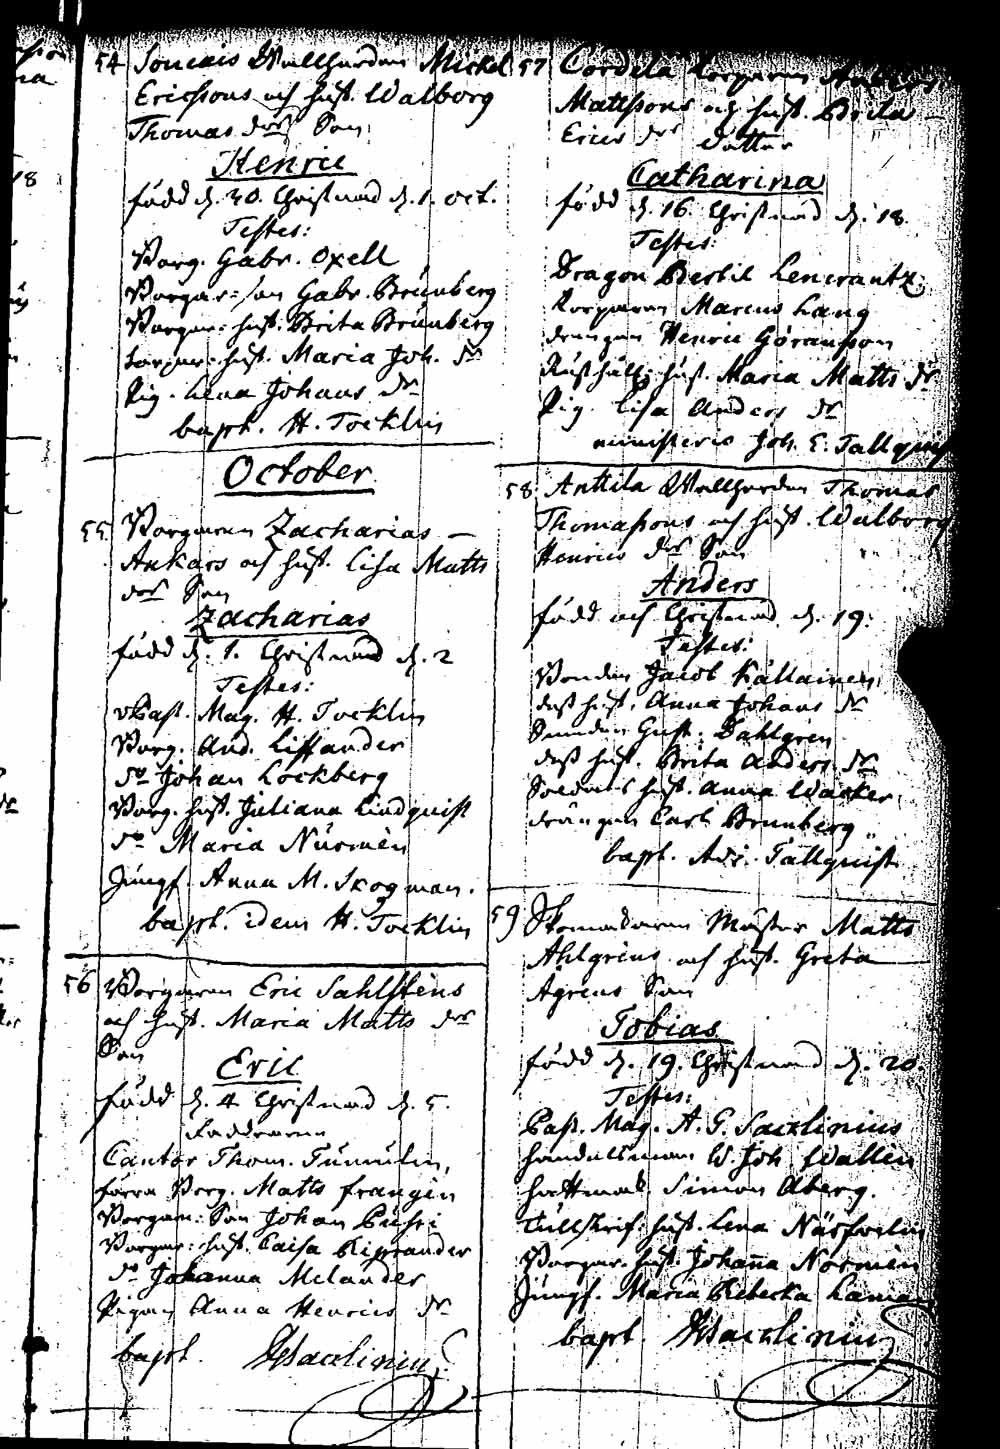 54 Soucais Wallherden Mickel
Ericssons och hust. Walborg
Thomas dors Son
Henric
född d. 30. Christnad d. 1. oct.
Testes:
Borg. Gabr. Oxell
Borgar-son Gabr. Brunberg
Borgar-hust. Brita Brunberg
hust. Maria Joh. dr
Pig. Lena Johans dr
bapt. H. Tocklin
October
55. Borgaren Zacharias
Ankars och hust. Lisa Matts
dors Son
Zacharias
född d. 1. Christnad d. 2
Testes:
Past. Mag. H. Tocklin
Borg. And. Lissander
do Johan Lockberg
Borg. hust. Juliana Lindquist
do Maria Nurmèn
Jungf. Anna M. Skogman.
bapt. idem H. Tocklin
56 Borgaren Eric Sahlstèns
och hust. Maria Matts dors
Son
Eric
född d. 4 Christnad d. 5.
Faddrarne
Cantor Thom.
Borg. Matts Frangèn
Borgare Son Johan
Borgar-hust. Caisa Kiprander
do Johanna Melander
Pigan Anna Henrics dr
bapt. Sacklinius
57 Cordela
Matthssons och hust. Brita
Erics dor dotter
Catharina
född d. 16. Christnad d. 18.
Testes:
Dragon Bertil Lencrantz
Marcus Lang
drengen Henric Göransson
hust. Maria Matts dr
Pig. Lisa Anders dr
ministeris Joh. E. Tallquist
58. Anttila Wallherden Thomas
Thomassons och hust. Walborg
Henrics dors Son
Anders
född och Christnad d. 19.
Testes:
Bonden Jacob Kallainen
dess hust. Anna Johans dr
Gust. Dahlgren
dess hust. Brita Anders dr
Soldats hust. Anna Wacker
drängen Carl Brunberg
bapt. Adj. Tallquist
59 Skomakaren Mäster Matts
Ahlgrens och hust. Greta
Ågrens Son
Tobias
född d. 19. Christnad d. 20.
Testes:
Past. Mag. A. G. Sacklinius
handelsman W Joh Wallén
Simon Åberg.
Tullskrif. hust. Lena
Borgar-hust. Johanna Normèn
Jungf. Maria Rebecka
bapt. Sacklinius